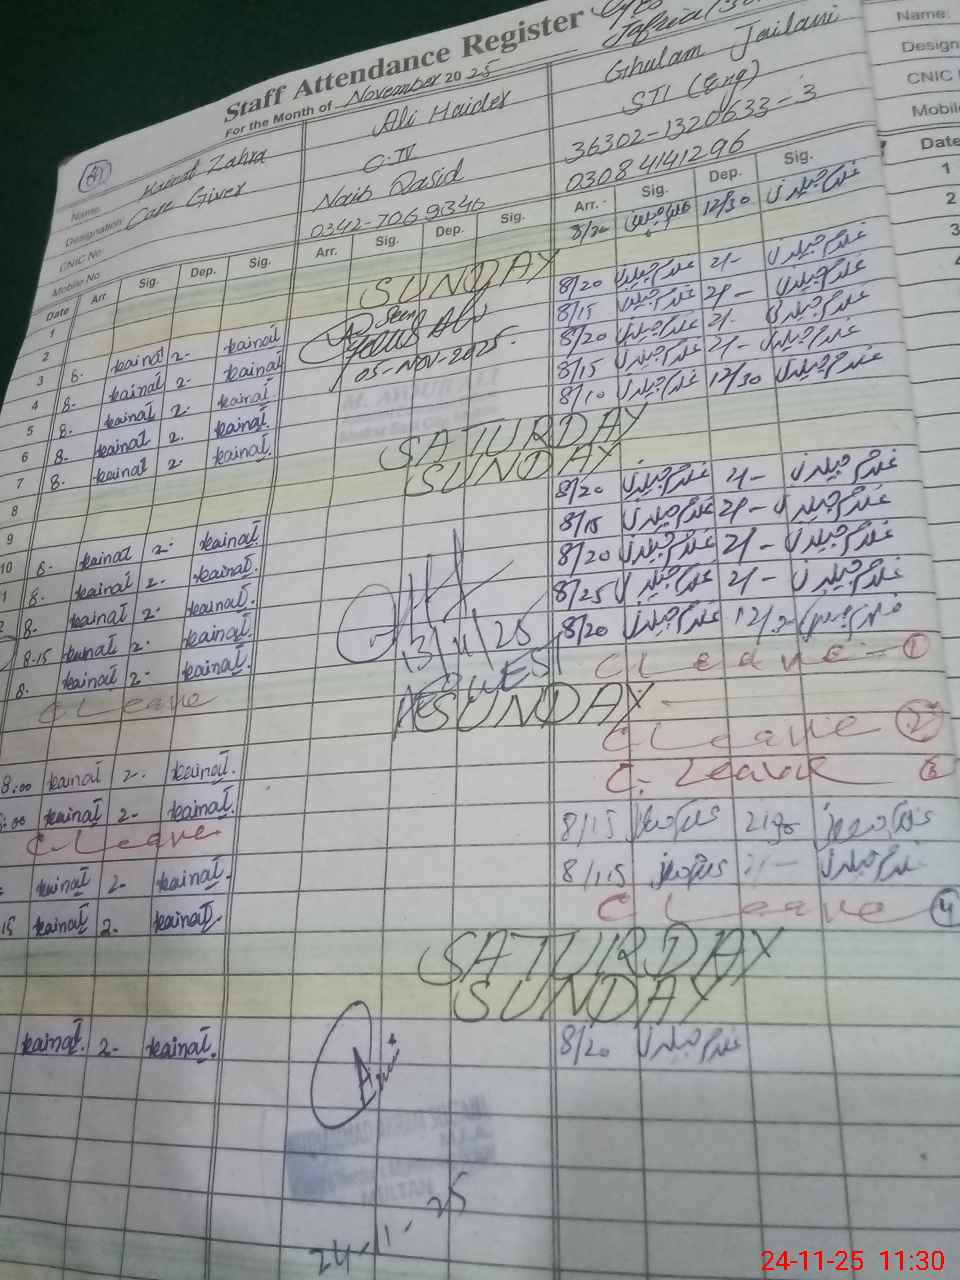 Staff Attendance Register
For the Month of November 2025
Name: Kainat Zahra
Ali Haider
Ghulam Jailani
Name:
Designation Care Giver
C-IV
STI (Eng)
CNIC No.
Naib Qasid
36302-1320633-3
CNIC
Mobile No.
0342-7069346
03084141296
Mobil
Date Arr. Sig. Dep. Sig. Arr. Sig. Dep. Sig. Arr. Sig. Dep. Sig. Date
1 8/20 12/30 1
2 SUNDAY 2
3 8- kainat 2- kainat Seen 8/20 غلام جیلانی 2/- غلام جیلانی 3
4 8- kainat 2- kainat 8/15 غلام جیلانی 2/- غلام جیلانی
5 8- kainat 2- kainat 05-NOV-2025. 8/20 غلام جیلانی 2/- غلام جیلانی
6 8- kainat 2- kainat 8/15 غلام جیلانی 2/- غلام جیلانی
7 8- kainat 2- kainat 8/10 غلام جیلانی 12/30 غلام جیلانی
8 SATURDAY
9 SUNDAY
10 8- kainat 2- kainat 8/20 غلام جیلانی 2/- غلام جیلانی
8- kainat 2- kainat 8/15 غلام جیلانی 2/- غلام جیلانی
8- kainat 2- kainat 8/20 غلام جیلانی 2/- غلام جیلانی
8-15 kainat 2- kainat 13/11/25 8/25 غلام جیلانی 2/- غلام جیلانی
8- kainat 2- kainat 8/20 غلام جیلانی
C Leave C Leave - 1
SUNDAY
8:00 kainat 2- kainat C Leave 2
:00 kainat 2- kainat C. Leave 3
C-Leave 8/15
kainat 2- kainat 8/15 2/- غلام جیلانی
15 kainat 2- kainat C Leave 4
SATURDAY
SUNDAY
kainat 2- kainat 8/20 غلام جیلانی
24-11-25
24-11-25 11:30